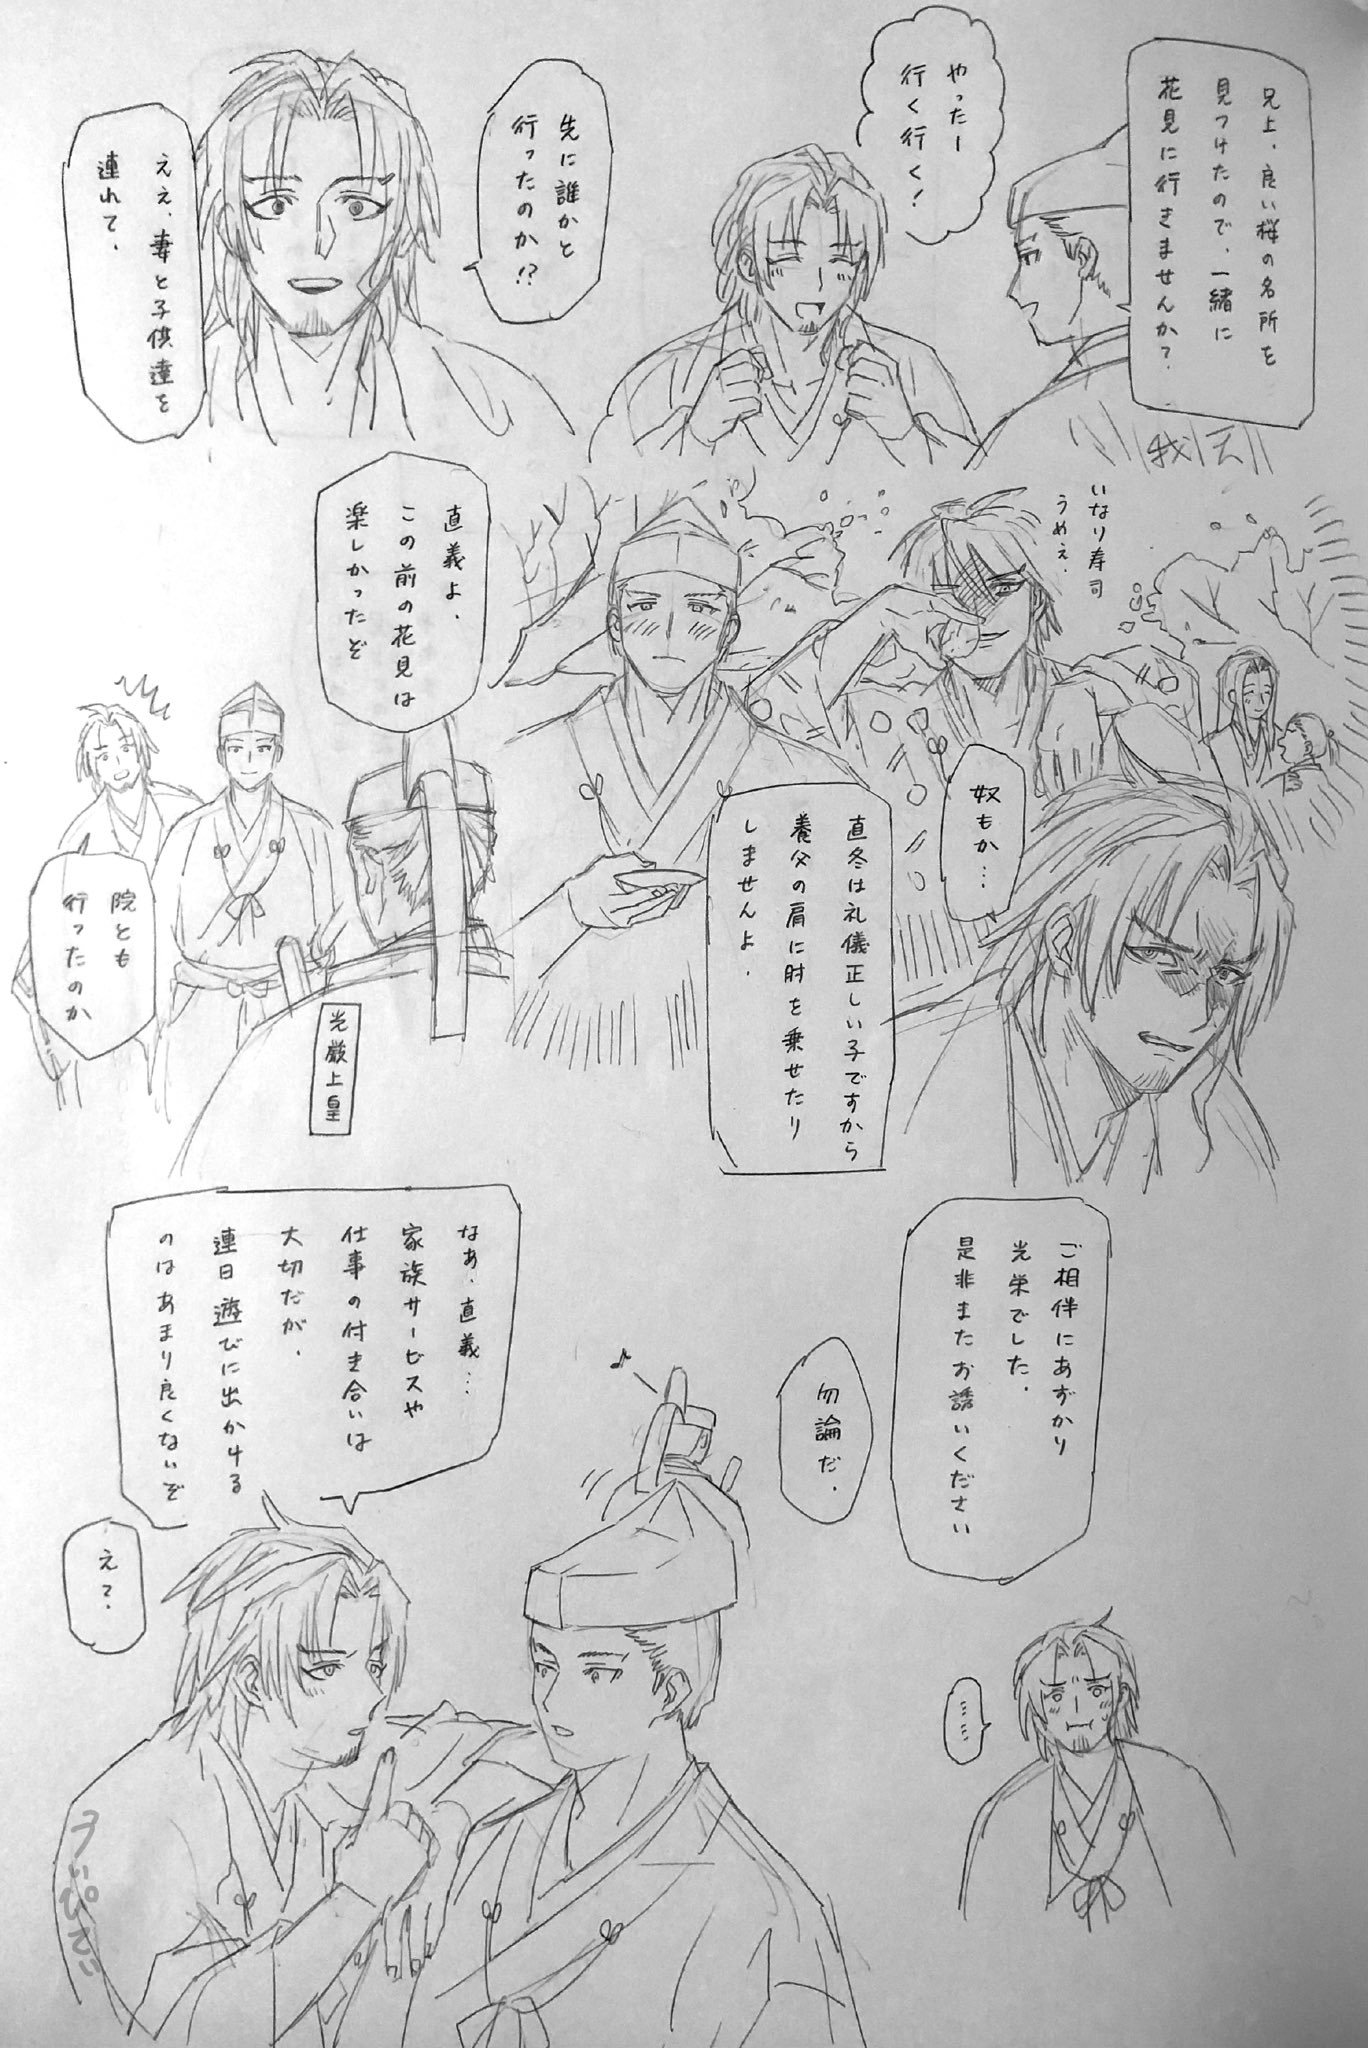 兄上、良い桜の名所を
見つけたので、一緒に
花見に行きませんか?
やったー
行く行く!
先に誰かと
行ったのか!?
ええ、妻と子供達を
連れて、
いなり寿司
うめえ、
奴もか…
直冬は礼儀正しい子ですから
養父の肩に肘を乗せたり
しませんよ、
直義よ、
この前の花見は
楽しかったぞ
院とも
行ったのか
光厳上皇
ご相伴にあずかり
光栄でした、
是非またお誘いください
勿論だ、
……
なあ、直義…
家族サービスや
仕事の付き合いは
大切だが、
連日遊びに出かける
のはあまり良くないぞ
え?